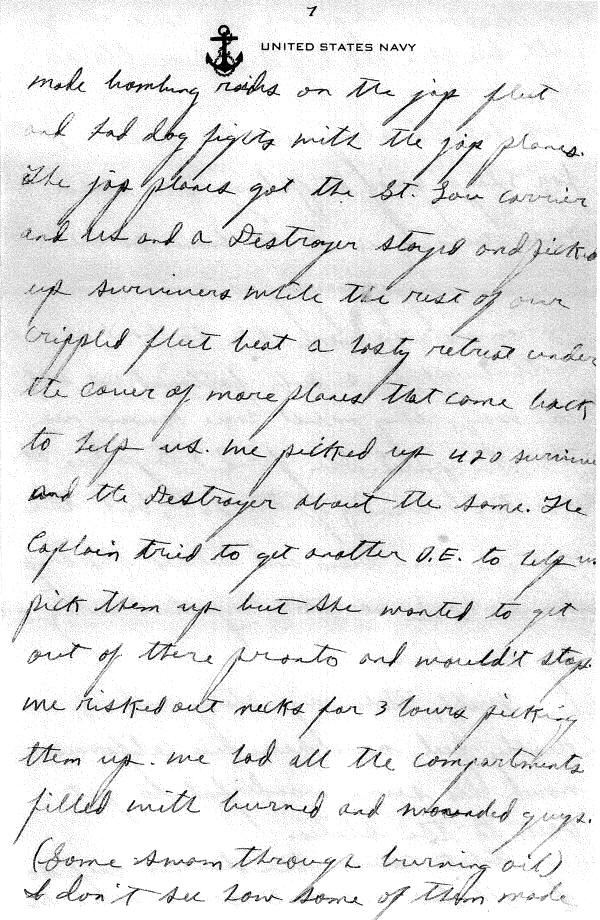 7
UNITED STATES NAVY
made bombing raids on the jap fleet
and had dog fights with the jap planes.
The jap planes got the St. Lou carrier
and us and a Destroyer stayed and picked
up surviners while the rest of our
crippled fleet beat a hasty retreat under
the cover of more planes that come back
to help us. we picked up 420 survive
and the Destroyer about the same. The
Captain tried to get another D.E. to help us
pick them up but she wanted to get
out of there pronto and wouldn't stop.
we risked out necks for 3 hours picking
them up. we had all the compartments
filled with burned and wounded guys.
(Some swam through burning oil)
I don't see how some of them made